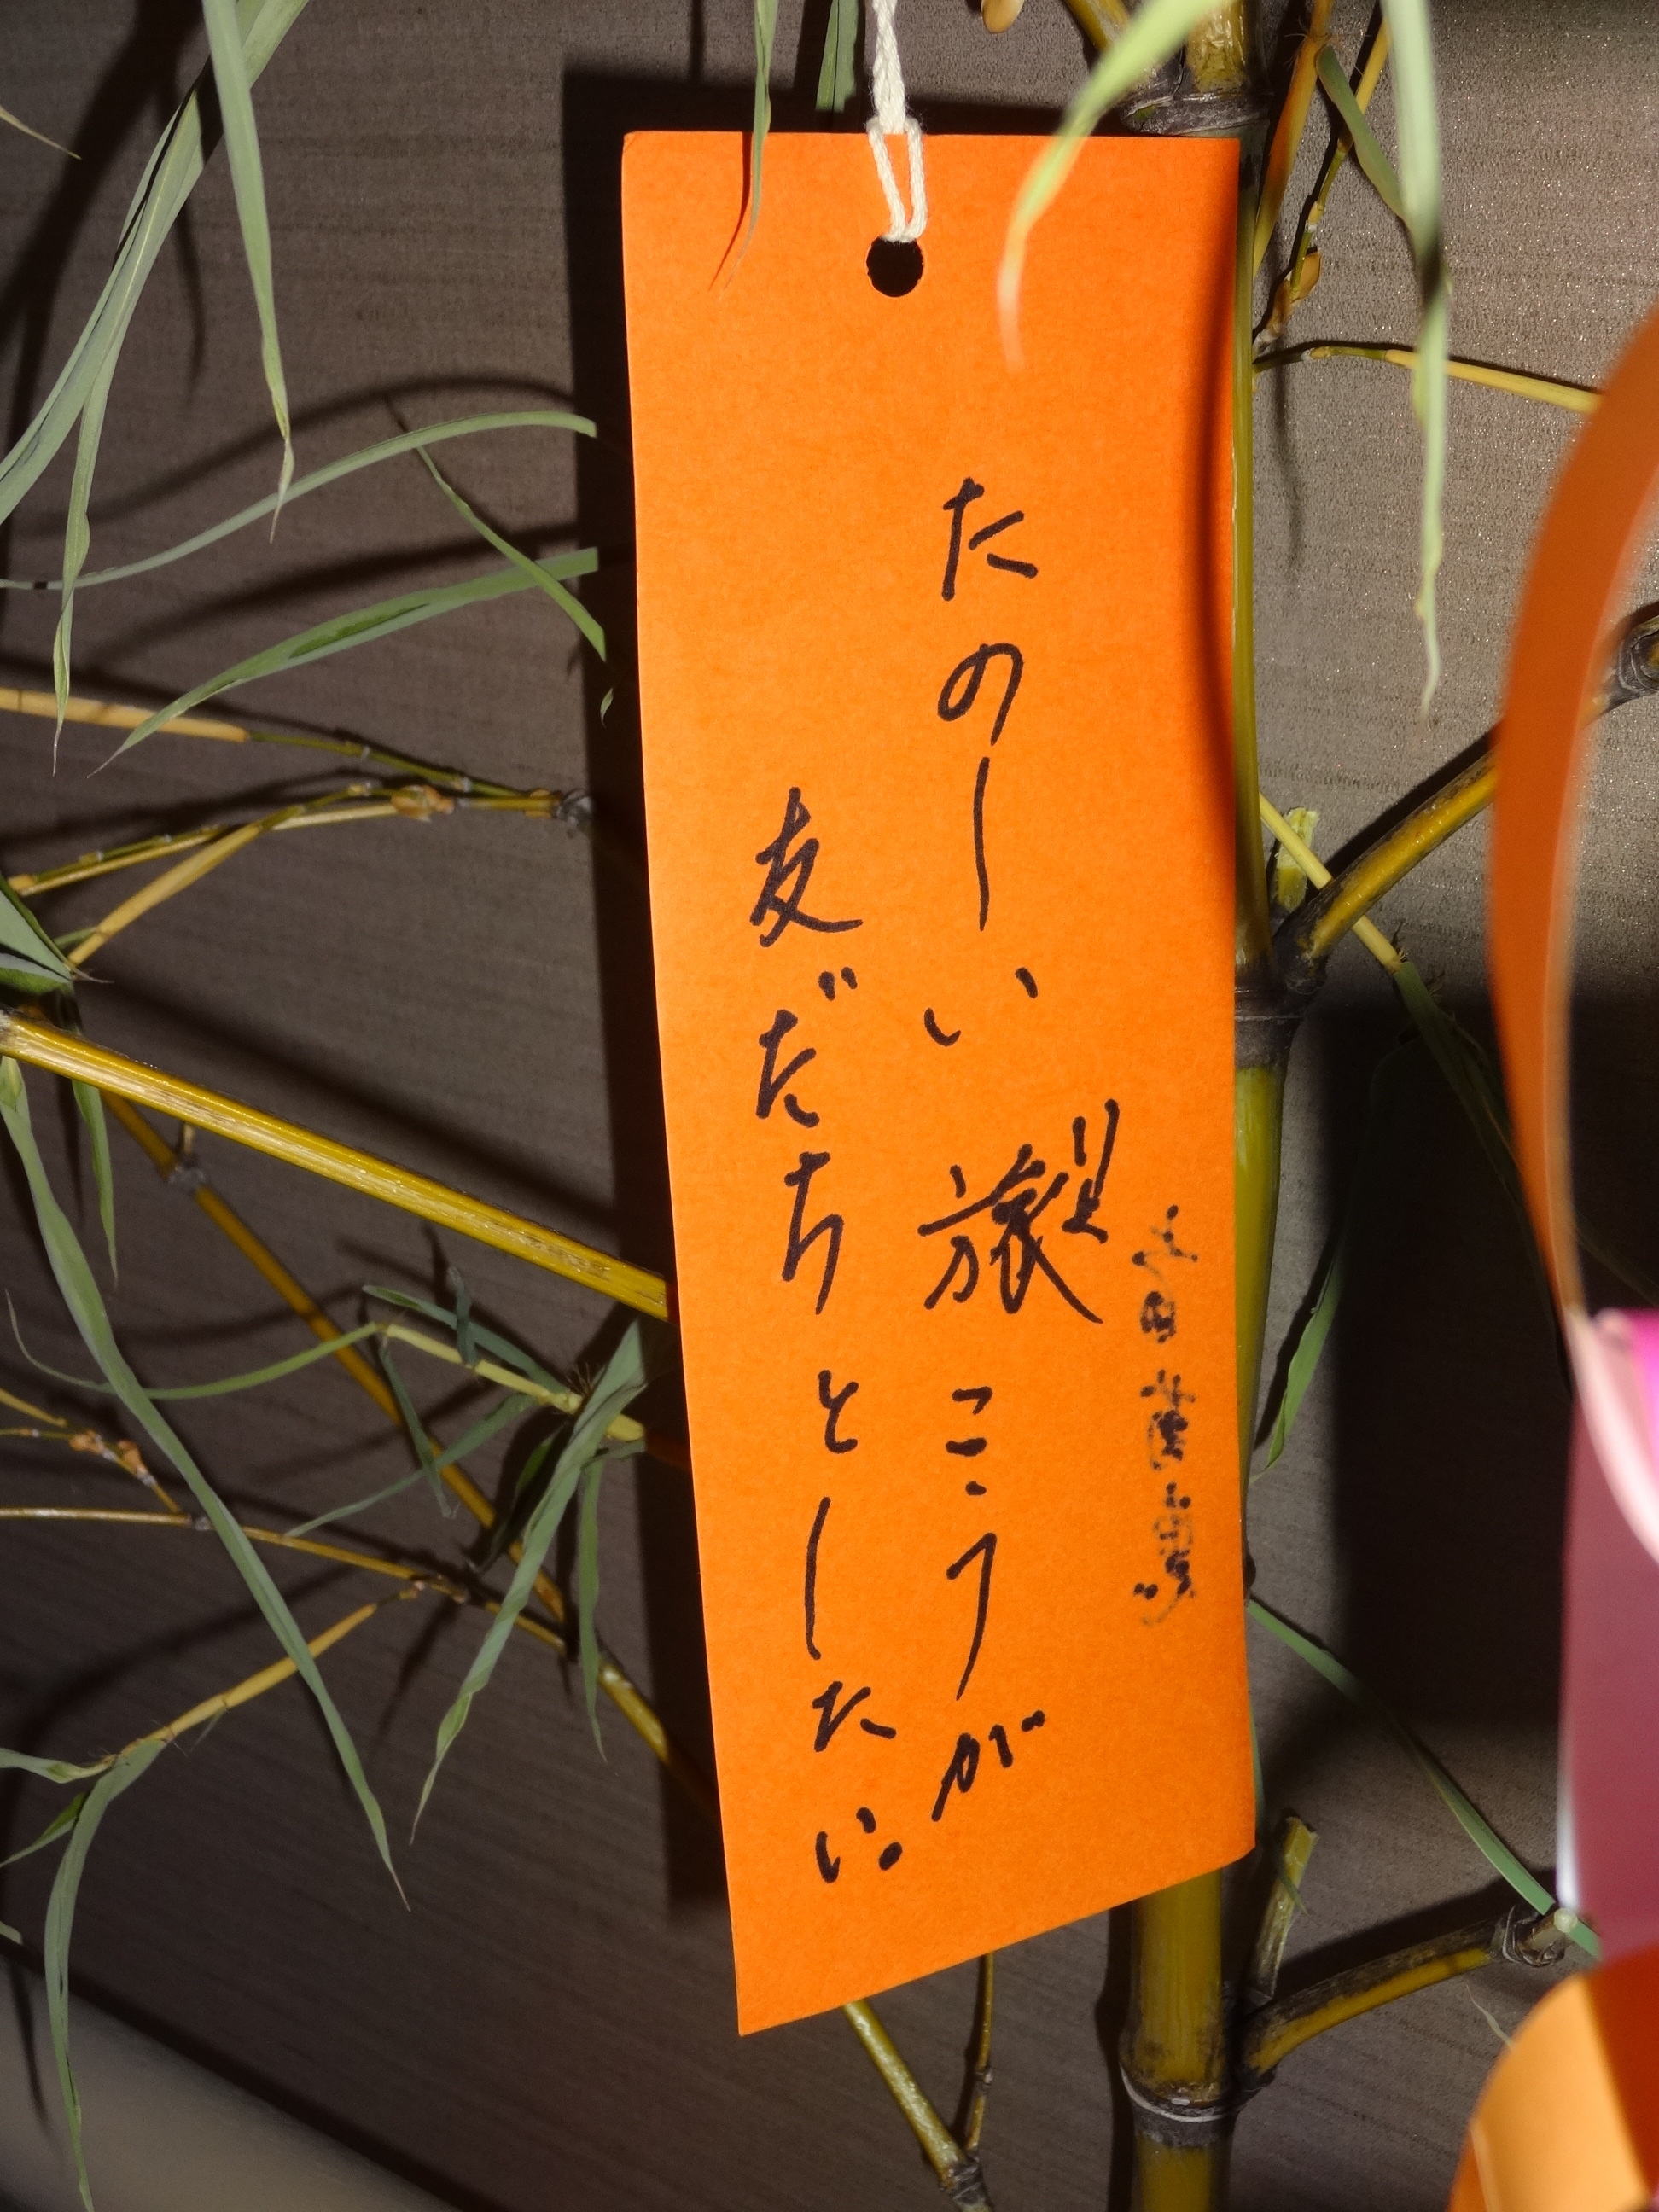 たのしい旅こうが
友だちとしたい。